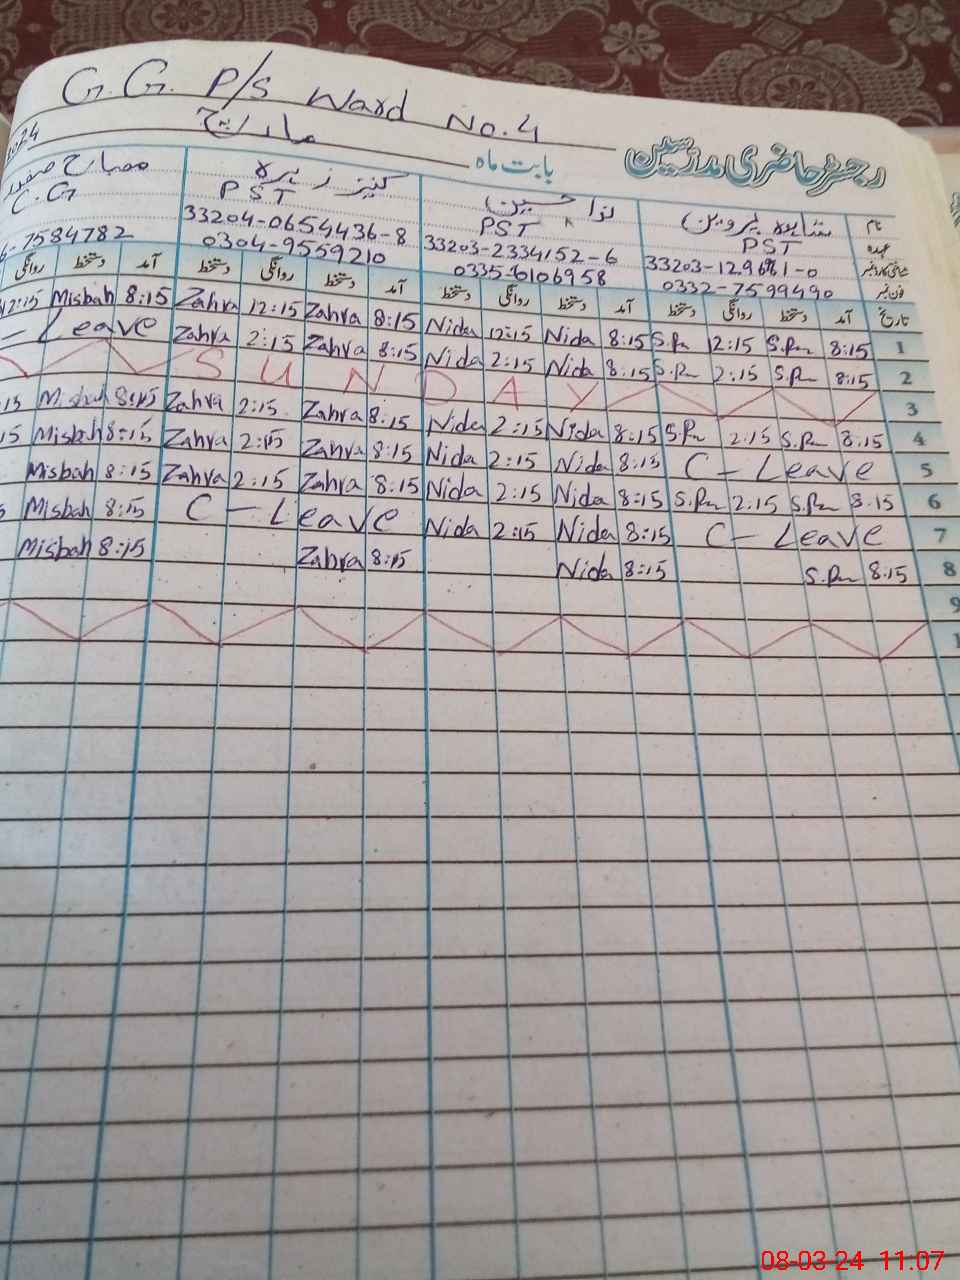 G.G. P/S Ward No.4
رجسٹر حاضری مدرسین بابت ماہ مارچ 2024
نام شاہدہ پروین ندا حسین کنیز زہرہ مصباح
عہدہ PST PST PST C.G
33203-129681-0 33203-2334152-6 33204-0654436-8
فون نمبر 0332-7599490 0335-6106958 0304-9559210 7584782
تاریخ آمد دستخط روانگی دستخط آمد دستخط روانگی دستخط آمد دستخط روانگی دستخط آمد دستخط روانگی
12:15 Misbah 8:15 Zahra 12:15 Zahra 8:15 Nida 12:15 Nida 8:15 S.Pn 12:15 S.Pn 8:15 1
- Leave Zahra 2:15 Zahra 8:15 Nida 2:15 Nida 8:15 S.Pn 2:15 S.Pn 8:15 2
SUNDAY 3
15 Misbah 8:15 Zahra 2:15 Zahra 8:15 Nida 2:15 Nida 8:15 S.Pn 2:15 S.Pn 8:15 4
15 Misbah 8:15 Zahra 2:15 Zahra 8:15 Nida 2:15 Nida 8:15 C-Leave 5
Misbah 8:15 Zahra 2:15 Zahra 8:15 Nida 2:15 Nida 8:15 S.Pn 2:15 S.Pn 8:15 6
Misbah 8:15 C-Leave Nida 2:15 Nida 8:15 C-Leave 7
Misbah 8:15 Zahra 8:15 Nida 8:15 S.Pn 8:15 8
9
1
08-03-24 11:07